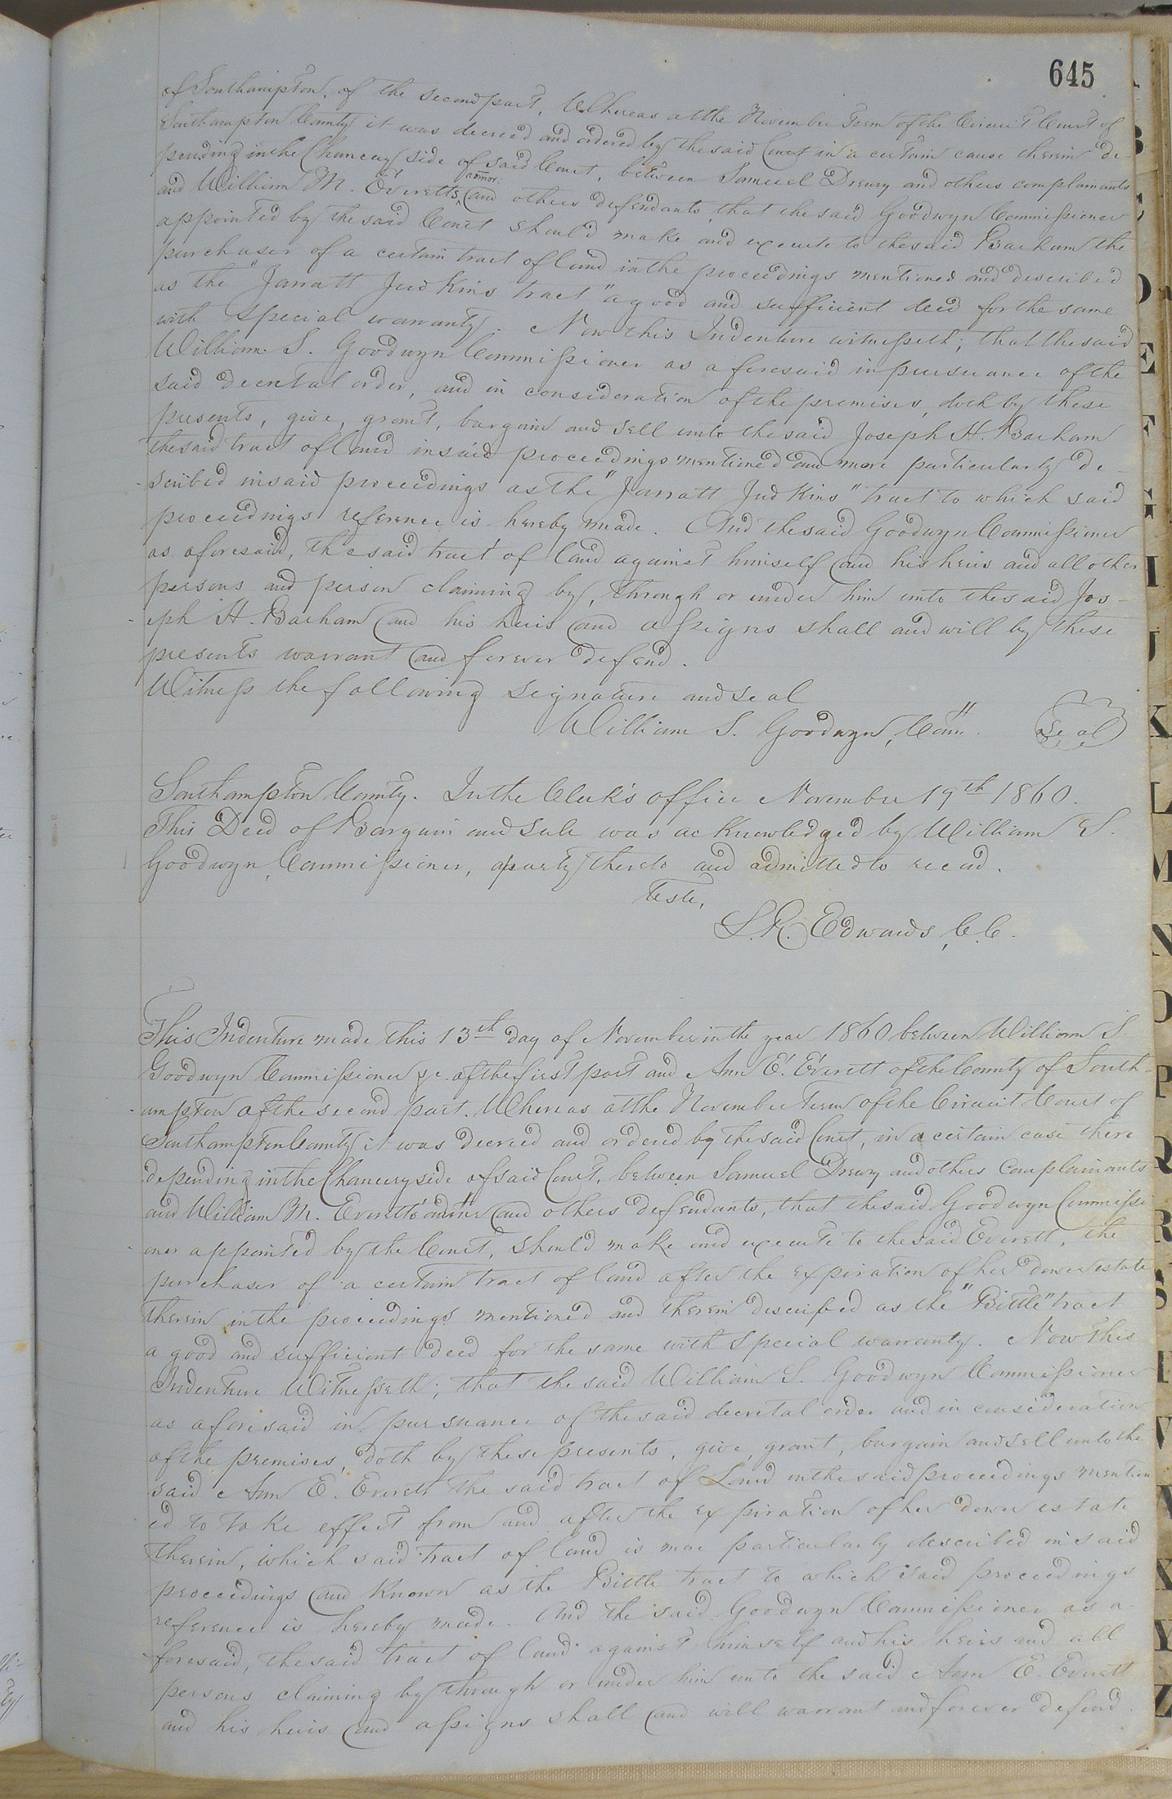 645
of Southampton, of the second part, Whereas at the November Term of the Circuit Court of
Southampton County it was decreed and ordered by the said Court in a certain cause therein de-
pending in the Chancery side of said Court, between Samuel Drewry and others complainants
and William M. Everetts admor. and others defendants, that the said Goodwyn Commissioner
appointed by the said Court should make and execute to the said Barham the
purchaser of a certain tract of land in the proceedings mentioned and described
as the "Jarratt Judkins tract" a good and sufficient deed for the same
with special warranty. Now this Indenture witnesseth; that the said
William S. Goodwyn Commissioner as aforesaid in pursuance of the
said decretal order, and in consideration of the premises, doth by these
presents, give, grant, bargain and sell unto the said Joseph H. Barham
the said tract of land in said proceedings mentioned and more particularly de-
scribed in said proceedings as the "Jarratt Judkins" tract to which said
proceedings reference is hereby made. And the said Goodwyn Commissioner
as aforesaid, the said tract of land against himself and his heirs and all other
persons and person claiming by, through or under him unto the said Jos-
eph H. Barham and his heirs and assigns shall and will by these
presents warrant and forever defend.
Witness the following signature and seal
William S. Goodwyn, Com. Seal
Southampton County. In the Clerk's office November 19th 1860.
This Deed of Bargain and sale was acknowledged by William S.
Goodwyn, Commissioner, a party thereto and admitted to record.
Teste,
L. R. Edwards, C.C.
This Indenture made this 13th day of November in the year 1860 between William S.
Goodwyn Commissioner &c. of the first part and Ann E. Everett of the County of South-
ampton of the second part. Whereas at the November Term of the Circuit Court of
Southampton County it was decreed and ordered by the said Court, in a certain case there
depending in the Chancery side of said Court, between Samuel Drewry and others complainants
and William M. Everetts admr and others defendants, that the said Goodwyn Commissi
oner appointed by the Court, should make and execute to the said Everett, the
purchaser of a certain tract of land after the expiration of her dower estate
therein in the proceedings mentioned and therein described as the "Bittle" tract
a good and sufficient deed for the same with special warranty. Now this
Indenture Witnesseth; that the said William S. Goodwyn Commissioner
as aforesaid in pursuance of the said decretal order and in consideration
of the premises, doth by these presents, give, grant, bargain and sell unto the
said Ann E. Everett the said tract of Land in the said proceedings mention
ed to take effect from and after the expiration of her dower estate
therein, which said tract of land is more particularly described in said
proceedings and known as the Bittle tract to which said proceedings
reference is hereby made. And the said Goodwyn Commissioner as a-
foresaid, the said tract of land against himself and his heirs and all
persons claiming by through or under him unto the said Ann E. Everett
and his heirs and assigns shall and will warrant and forever defend.